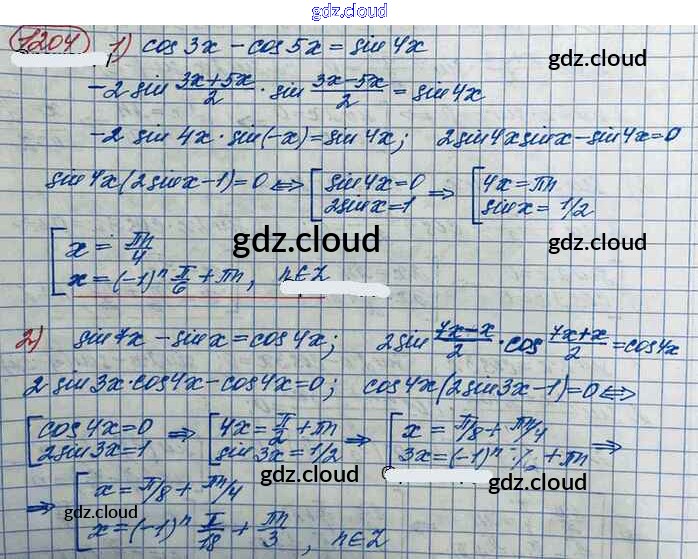 gdz.cloud
1204 1) cos 3x - cos 5x = sin 4x
gdz.cloud
-2 sin (3x+5x)/2 · sin (3x-5x)/2 = sin 4x
-2 sin 4x · sin(-x) = sin 4x; 2sin4x sinx - sin 4x = 0
sin 4x(2sinx-1) = 0 ⇔ [ sin 4x = 0 ⇒ [ 4x = πn
2sinx = 1 sinx = 1/2
[ x = πn/4
gdz.cloud
x = (-1)^n π/6 + πn, n∈Z
2) sin 7x - sin x = cos 4x; 2sin (7x-x)/2 · cos (7x+x)/2 = cos4x
2 sin 3x · cos4x - cos4x = 0; cos4x(2sin3x-1) = 0 ⇔
[ cos 4x = 0 ⇒ [ 4x = π/2 + πn ⇒ [ x = π/8 + πn/4 ⇒
2sin 3x = 1 sin 3x = 1/2 3x = (-1)^n · π/6 + πn
gdz.cloud
gdz.cloud
⇒ [ x = π/8 + πn/4
gdz.cloud
x = (-1)^n π/18 + πn/3, n∈Z
gdz.cloud